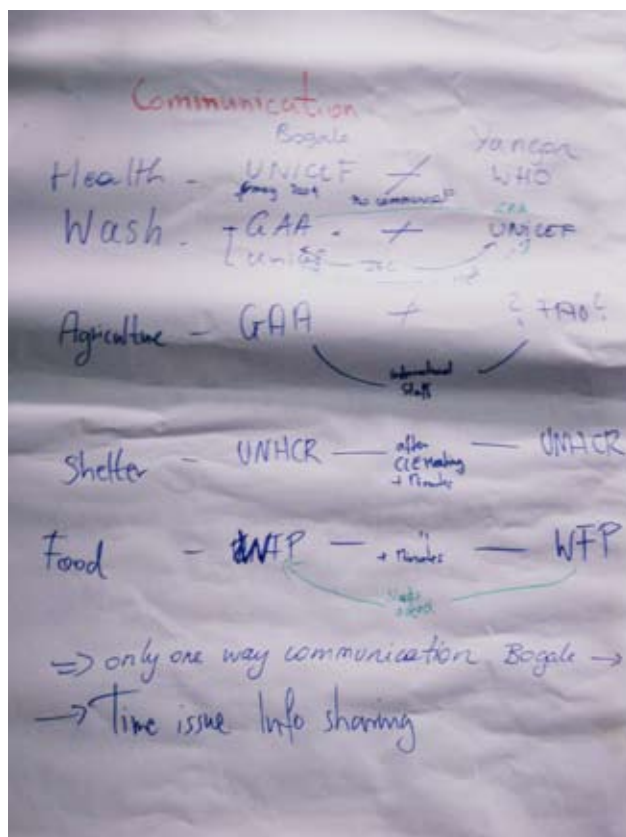 Communication
Bogale Yangon
Health - UNICEF WHO
no communicat°
Wash - GAA UNICEF
Unicef
Agriculture - GAA ? FAO?
international
Staff
Shelter - UNHCR — after — UNHCR
meeting
+ Minutes
Food - WFP — " — WFP
+ Minutes
=> only one way communication Bogale →
→ Time issue Info sharing